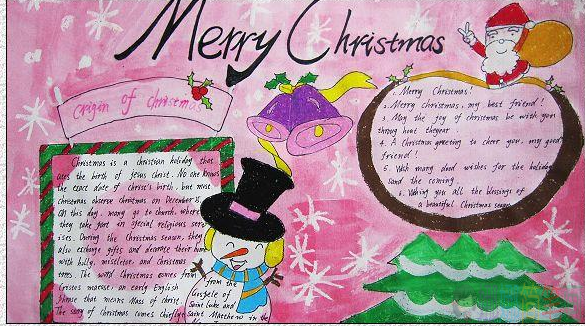 Merry Christmas
origin of christmas
Christmas is a christian holiday that
ates the birth of Jesus christ. No one knows
the exact date of christ's birth, but most
Christmas observe Christmas on December 25.
On this day, many go to church, where
they take part in special religious serv
ises. During the Christmas season, they
also exchange gifts and decorate their
with holly, mistletoe, and Christmas
trees. The word Christmas comes from
maesse, an early English
phrase that means Mass of christ.
The story of Christmas comes chiefly
from the
Gospels of
Saint Luke and
Saint Matthew in the
1. Merry Christmas!
2. Merry christmas, my best friend!
3. May the joy of christmas be with you
through hout the year.
4. A Christmas greeting to cheer you, my good
friend!
5. With many good wishes for the holiday
and the coming
6. Wishing you all the blessings of
a beautiful Christmas season